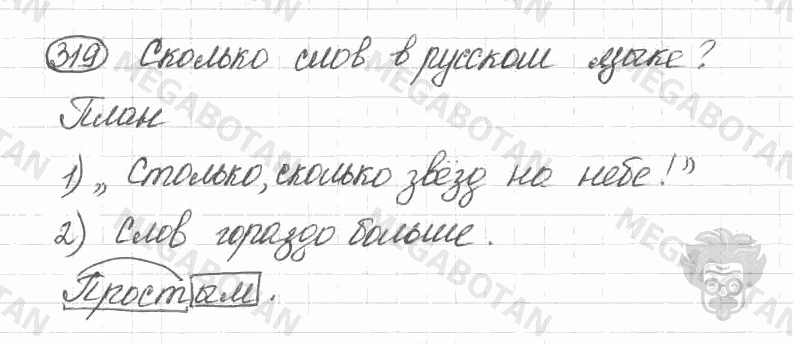 319 Сколько слов в русском языке?
План
1) „Столько, сколько звёзд на небе!”
2) Слов гораздо больше.
Простым.
MEGABOTAN